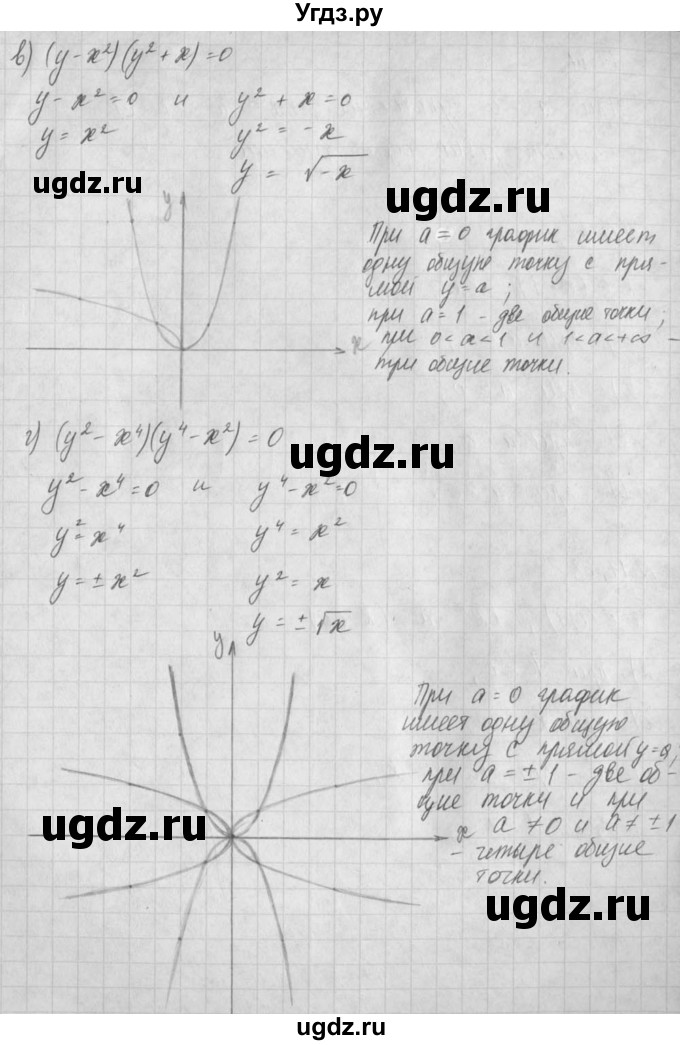 Угдз.ру
в) (y - x²)(y² + x) = 0
y - x² = 0 и y² + x = 0
y = x² y² = -x
y = √-x
ugdz.ru
ugdz.ru
y
При a = 0 график имеет
одну общую точку с пря-
мой y = a;
при a = 1 - две общие точки;
при 0 < a < 1 и 1 < a < +∞ -
три общие точки.
x
ugdz.ru
ugdz.ru
г) (y² - x⁴)(y⁴ - x²) = 0
ugdz.ru
y² - x⁴ = 0 и y⁴ - x² = 0
y² = x⁴ y⁴ = x²
y = ± x² y² = x
y = ± √x
ugdz.ru
y
При a = 0 график
имеет одну общую
точку с прямой y = a,
при a = ± 1 - две об-
щие точки и при
a ≠ 0 и a ≠ ± 1
- четыре общие
точки.
x
ugdz.ru
ugdz.ru
ugdz.ru